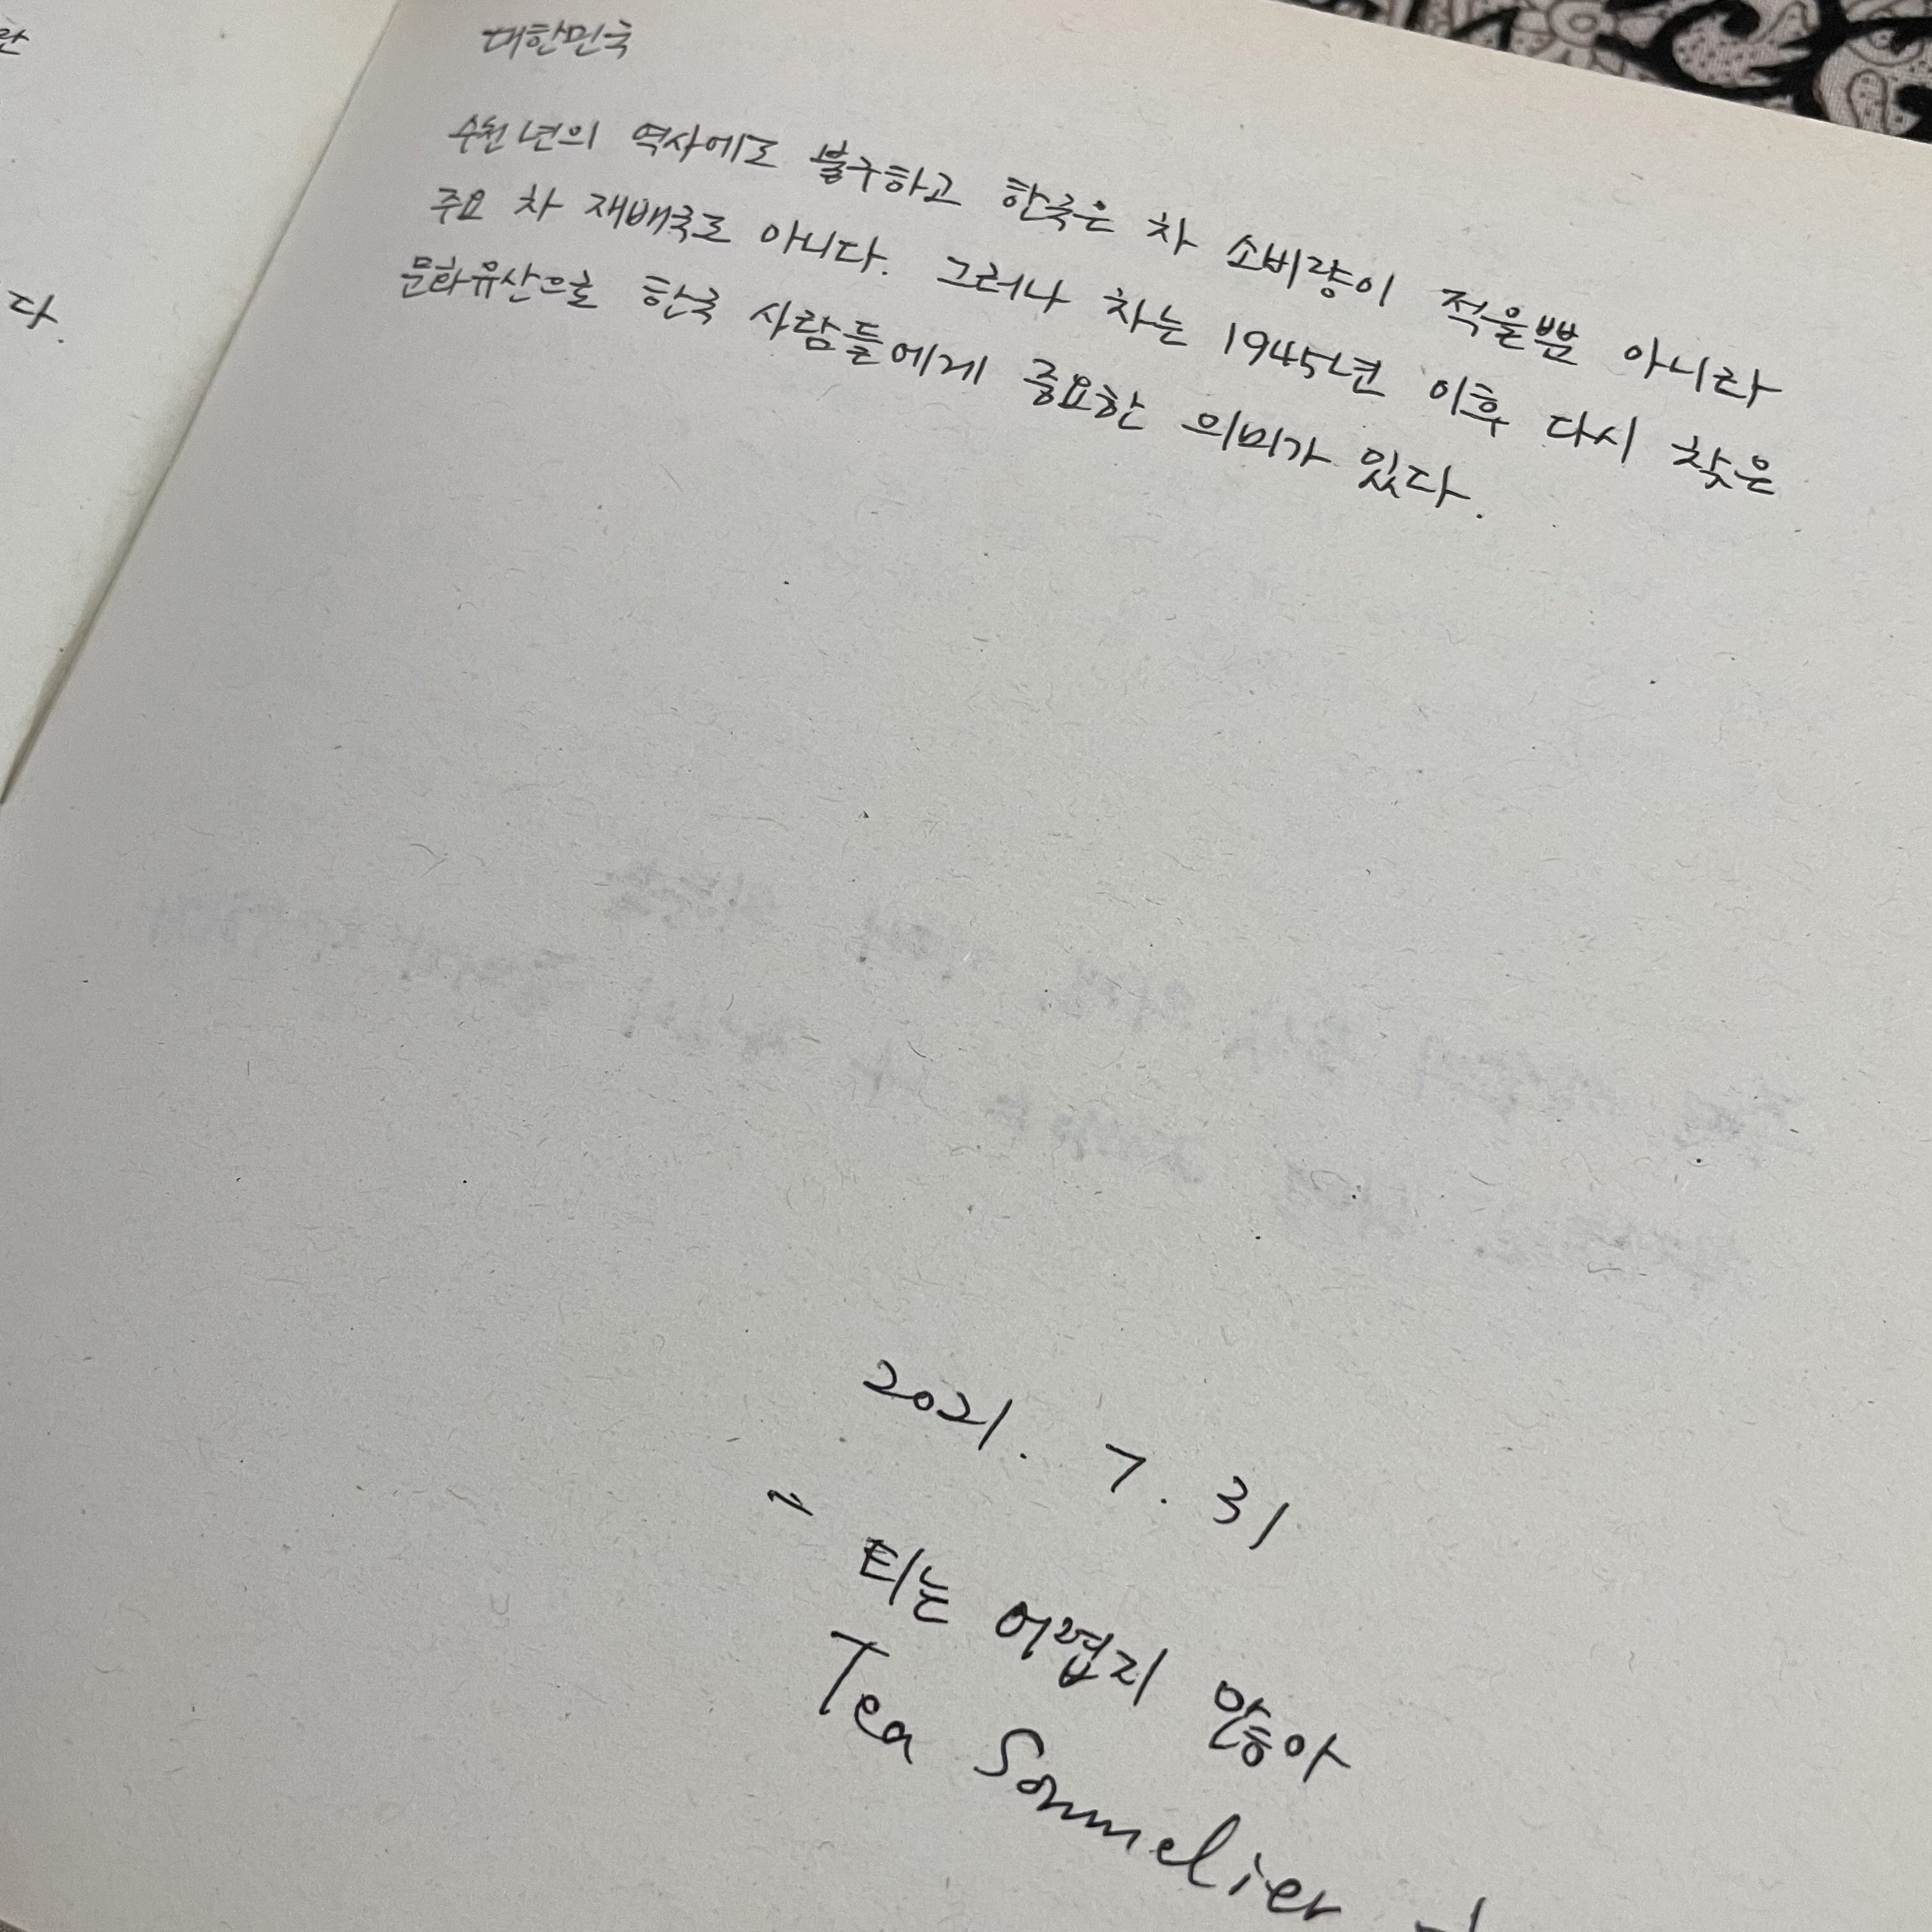 대한민국
수천년의 역사에도 불구하고 한국은 차 소비량이 적을뿐 아니라
주요 차 재배국도 아니다. 그러나 차는 1945년 이후 다시 찾은
문화유산으로 한국 사람들에게 중요한 의미가 있다.
다.
2021. 7. 31
티는 어렵지 않아
Tea Sommelier